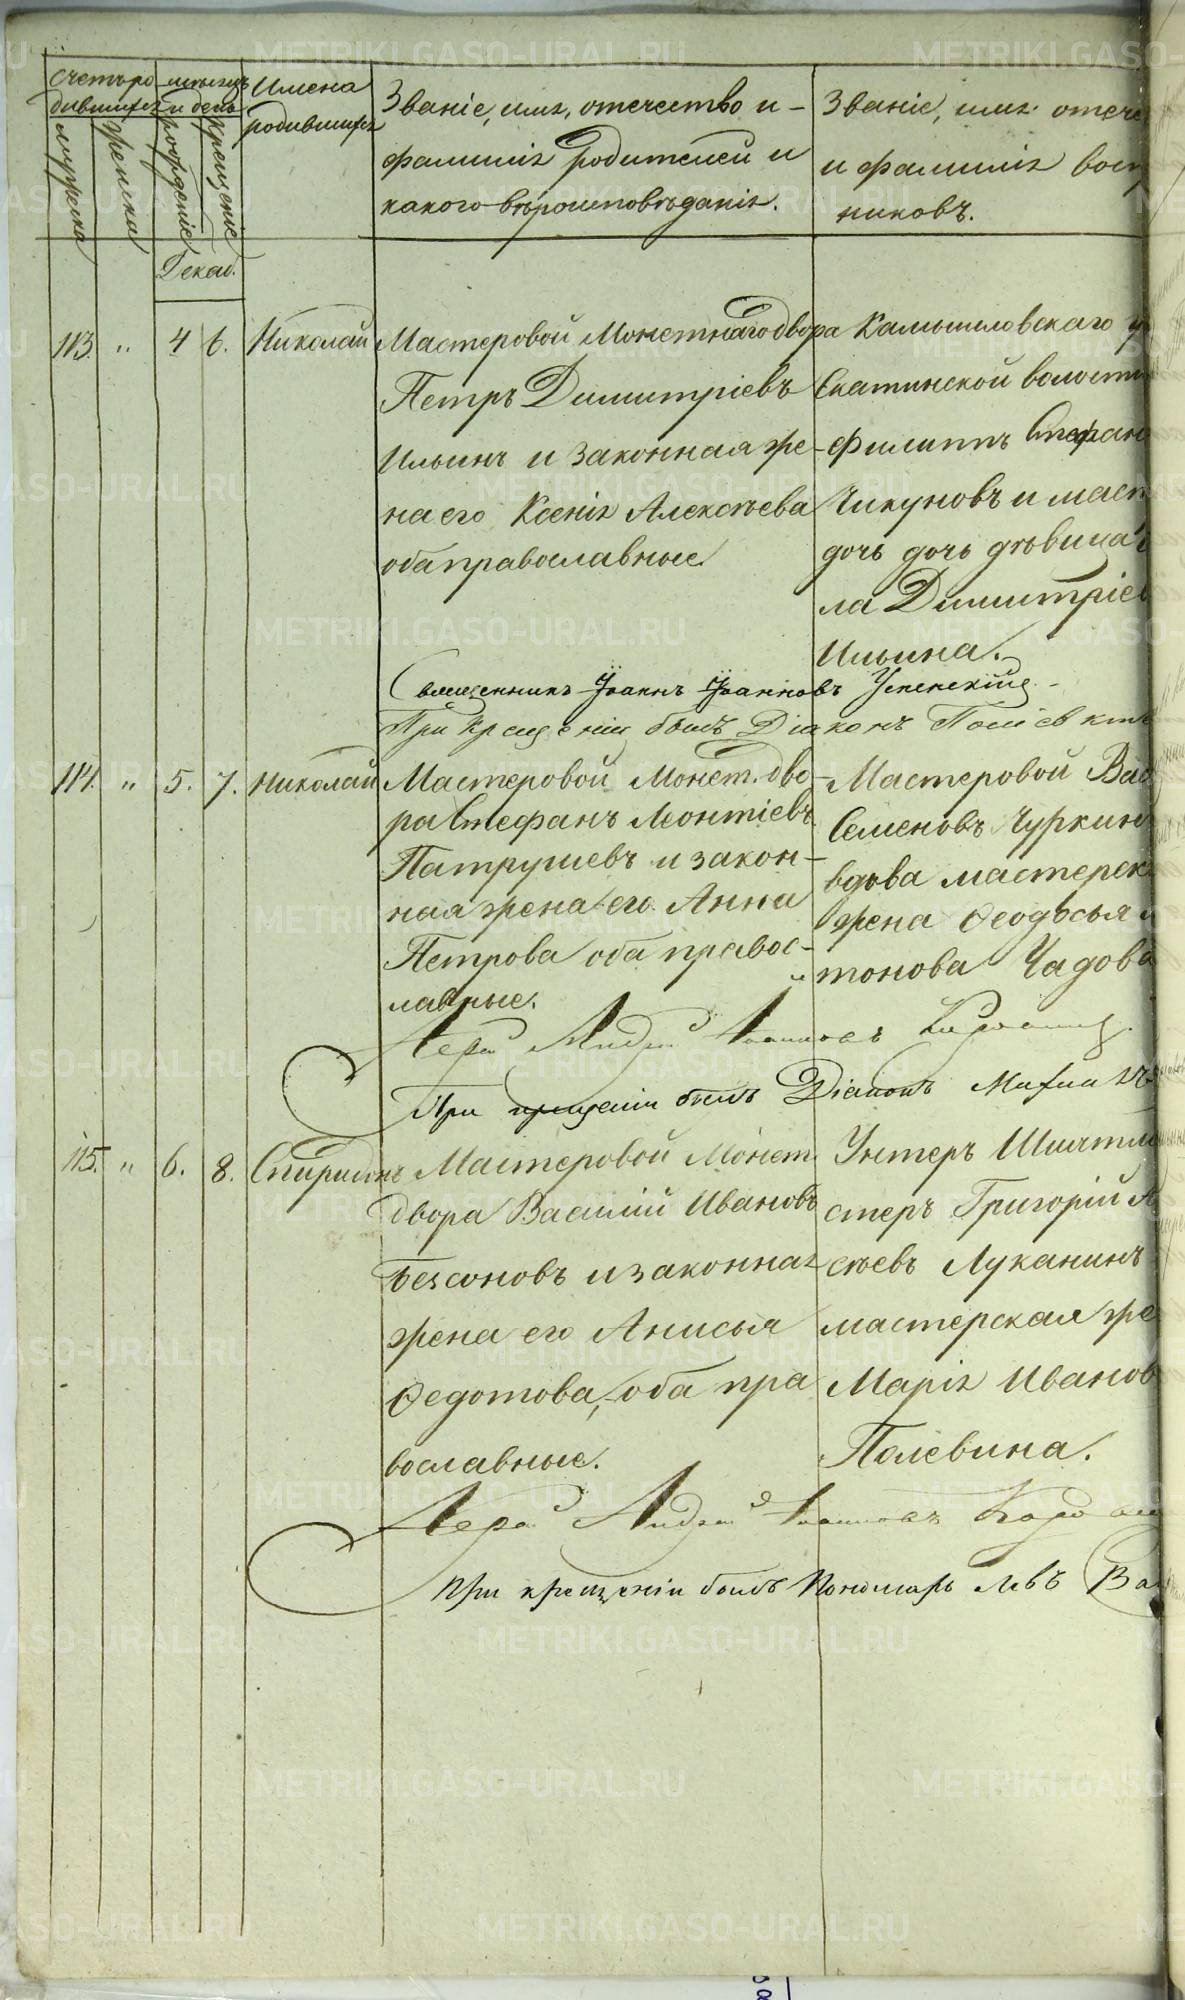 Счетъ ро-
дившихся
мужска
женска
мѣсяцъ
и день
рожденіе
крещеніе
Имена
родившихся
Званіе, имя, отечество и -
фамилія родителей и
какого вѣроисповѣданія.
Званіе, имя отече
и фамилія восп
никовъ.
Декаб.
113. " 4 6. Николай
Мастеровой Монетнаго двора
Петръ Димитріевъ
Ильинъ и законная же-
на его Ксенія Алексѣева
оба православные
Камышловскаго у
Скатинской волости
Филиппъ Стефан
Чикуновъ и маст
дочь дочь дѣвица
ла Димитріев
Ильина.
Священникъ Іоаннъ Іоанновъ Успенскій
При крещеніи былъ Діаконъ
114. " 5. 7. Николай
Мастеровой Монет. дво-
ра Стефанъ Леонтіевъ
Патрушевъ и закон-
ная жена его Анна
Петрова оба правос-
лавные.
Мастеровой Вас
Семеновъ Чуркин
вдова мастерск
жена Ѳеодосья
тонова Чадова
Іерей Андрей Іоанновъ
При крещеніи былъ Діаконъ
115. " 6. 8. Спиридонъ
Мастеровой Монет.
двора Василій Ивановъ
Безсоновъ и законная
жена его Анисья
Ѳедотова, оба пра
вославные.
Унтеръ Шихтм
стеръ Григорій А
сѣевъ Луканинъ
мастерская же
Марія Иванов
Полевина.
Іерей Андрей Іоанновъ
При крещеніи былъ Пономарь Левъ Ва
METRIKI.GASO-URAL.RU